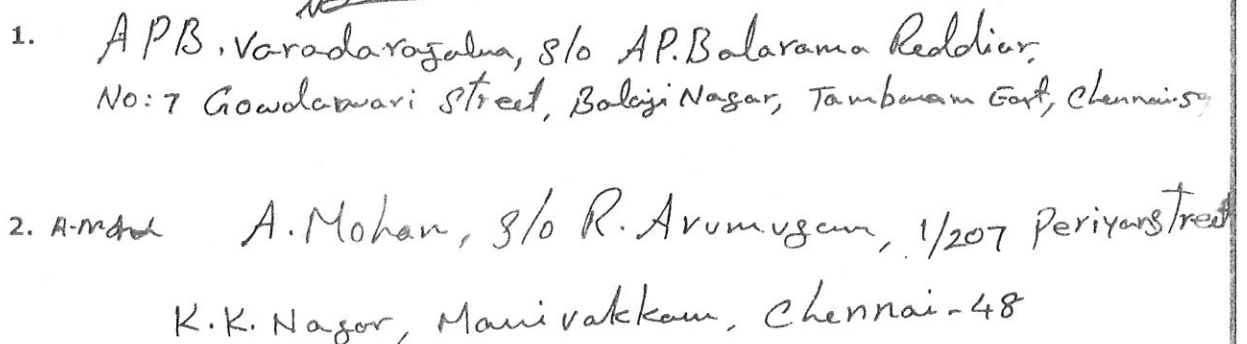 1. APB. Varadarajalua, S/o AP. Balarama Reddiar,
No: 7 Gowdawari Street, Balaji Nagar, Tambaram East, Chennai-59
2. A. Mohan, S/o R. Arumugam, 1/207 Periyar Street
K.K. Nagar, Manivakkam, Chennai-48